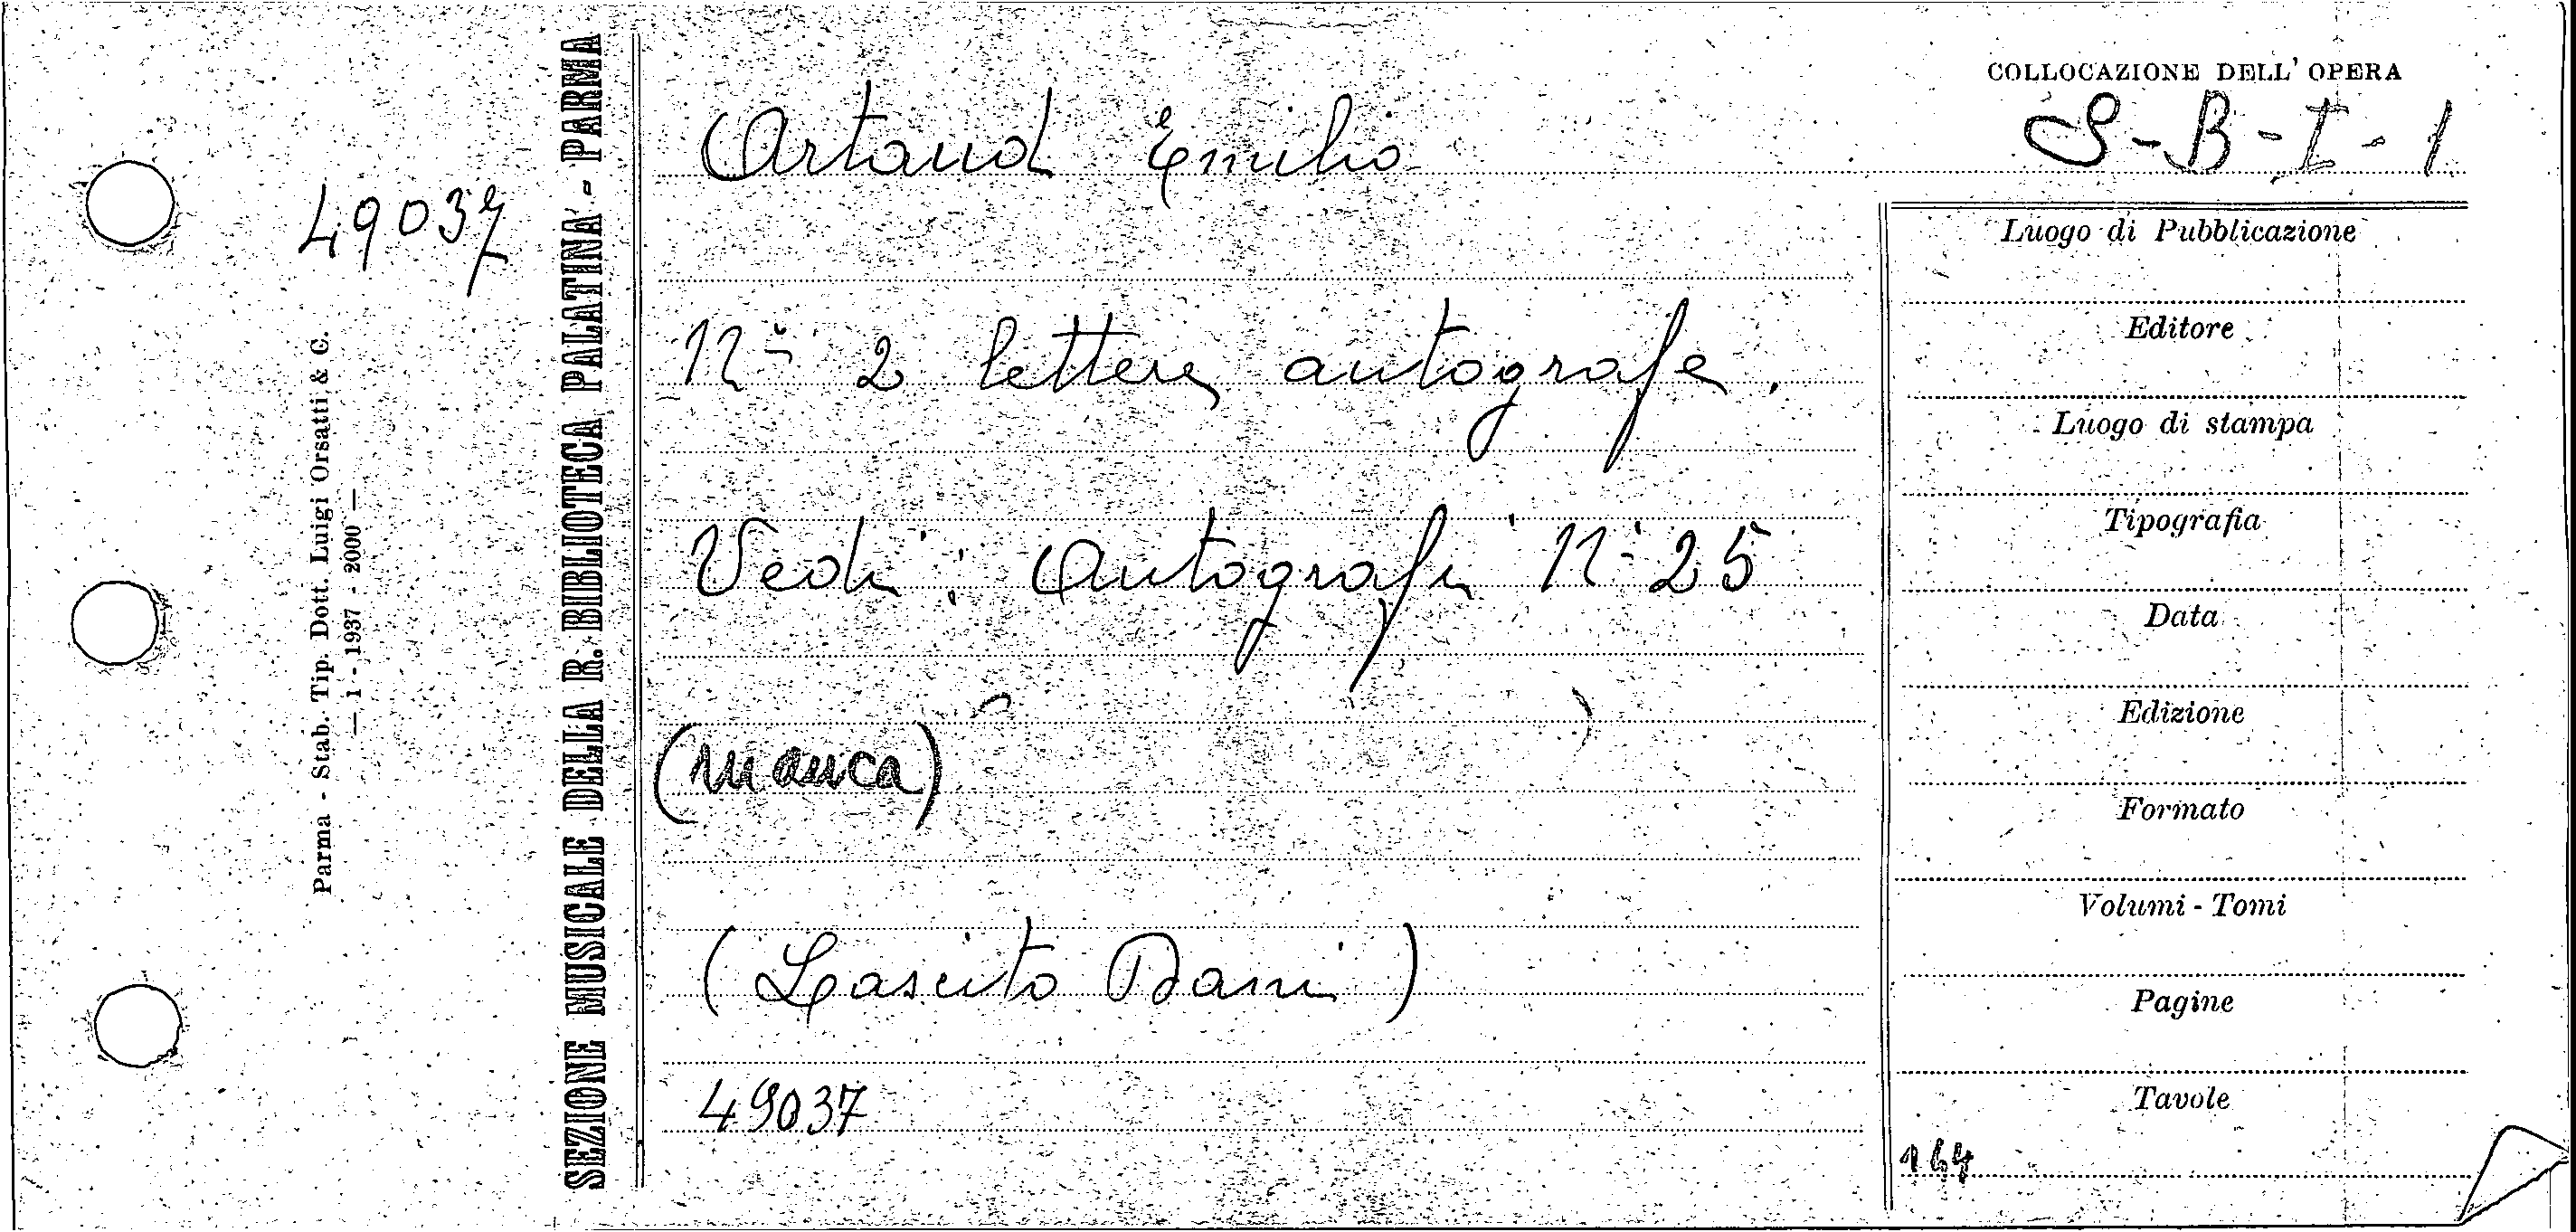 COLLOCAZIONE DELL' OPERA
Artaud Emilio
S-B-I-1
49037
N° 2 lettere autografe.
Vedi: Autografi N° 25
(manca)
(Lascito Barri)
49037
Luogo di Pubblicazione
Editore
Luogo di stampa
Tipografia
Data
Edizione
Formato
Volumi - Tomi
Pagine
Tavole
SEZIONE MUSICALE DELLA R. BIBLIOTECA PALATINA - PARMA
Parma - Stab. Tip. Dott. Luigi Orsatti & C.
— 1 - 1937 - 2000 —